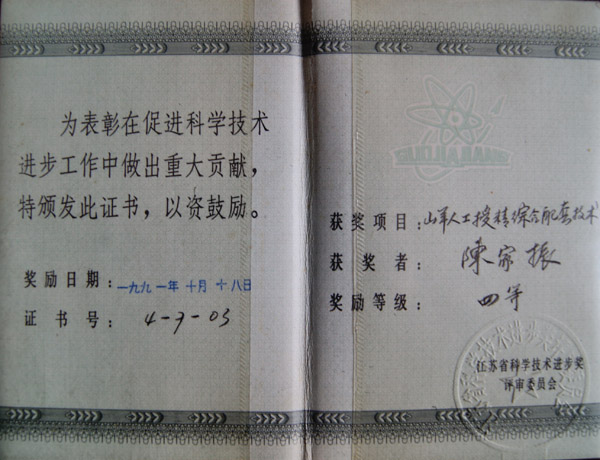 为表彰在促进科学技术
进步工作中做出重大贡献，
特颁发此证书，以资鼓励。
奖励日期：一九九一年十月十八日
证书号：4-7-03
获奖项目：山羊人工授精综合配套技术
获奖者：陳家振
奖励等级：四等
江苏省科学技术进步奖
评审委员会